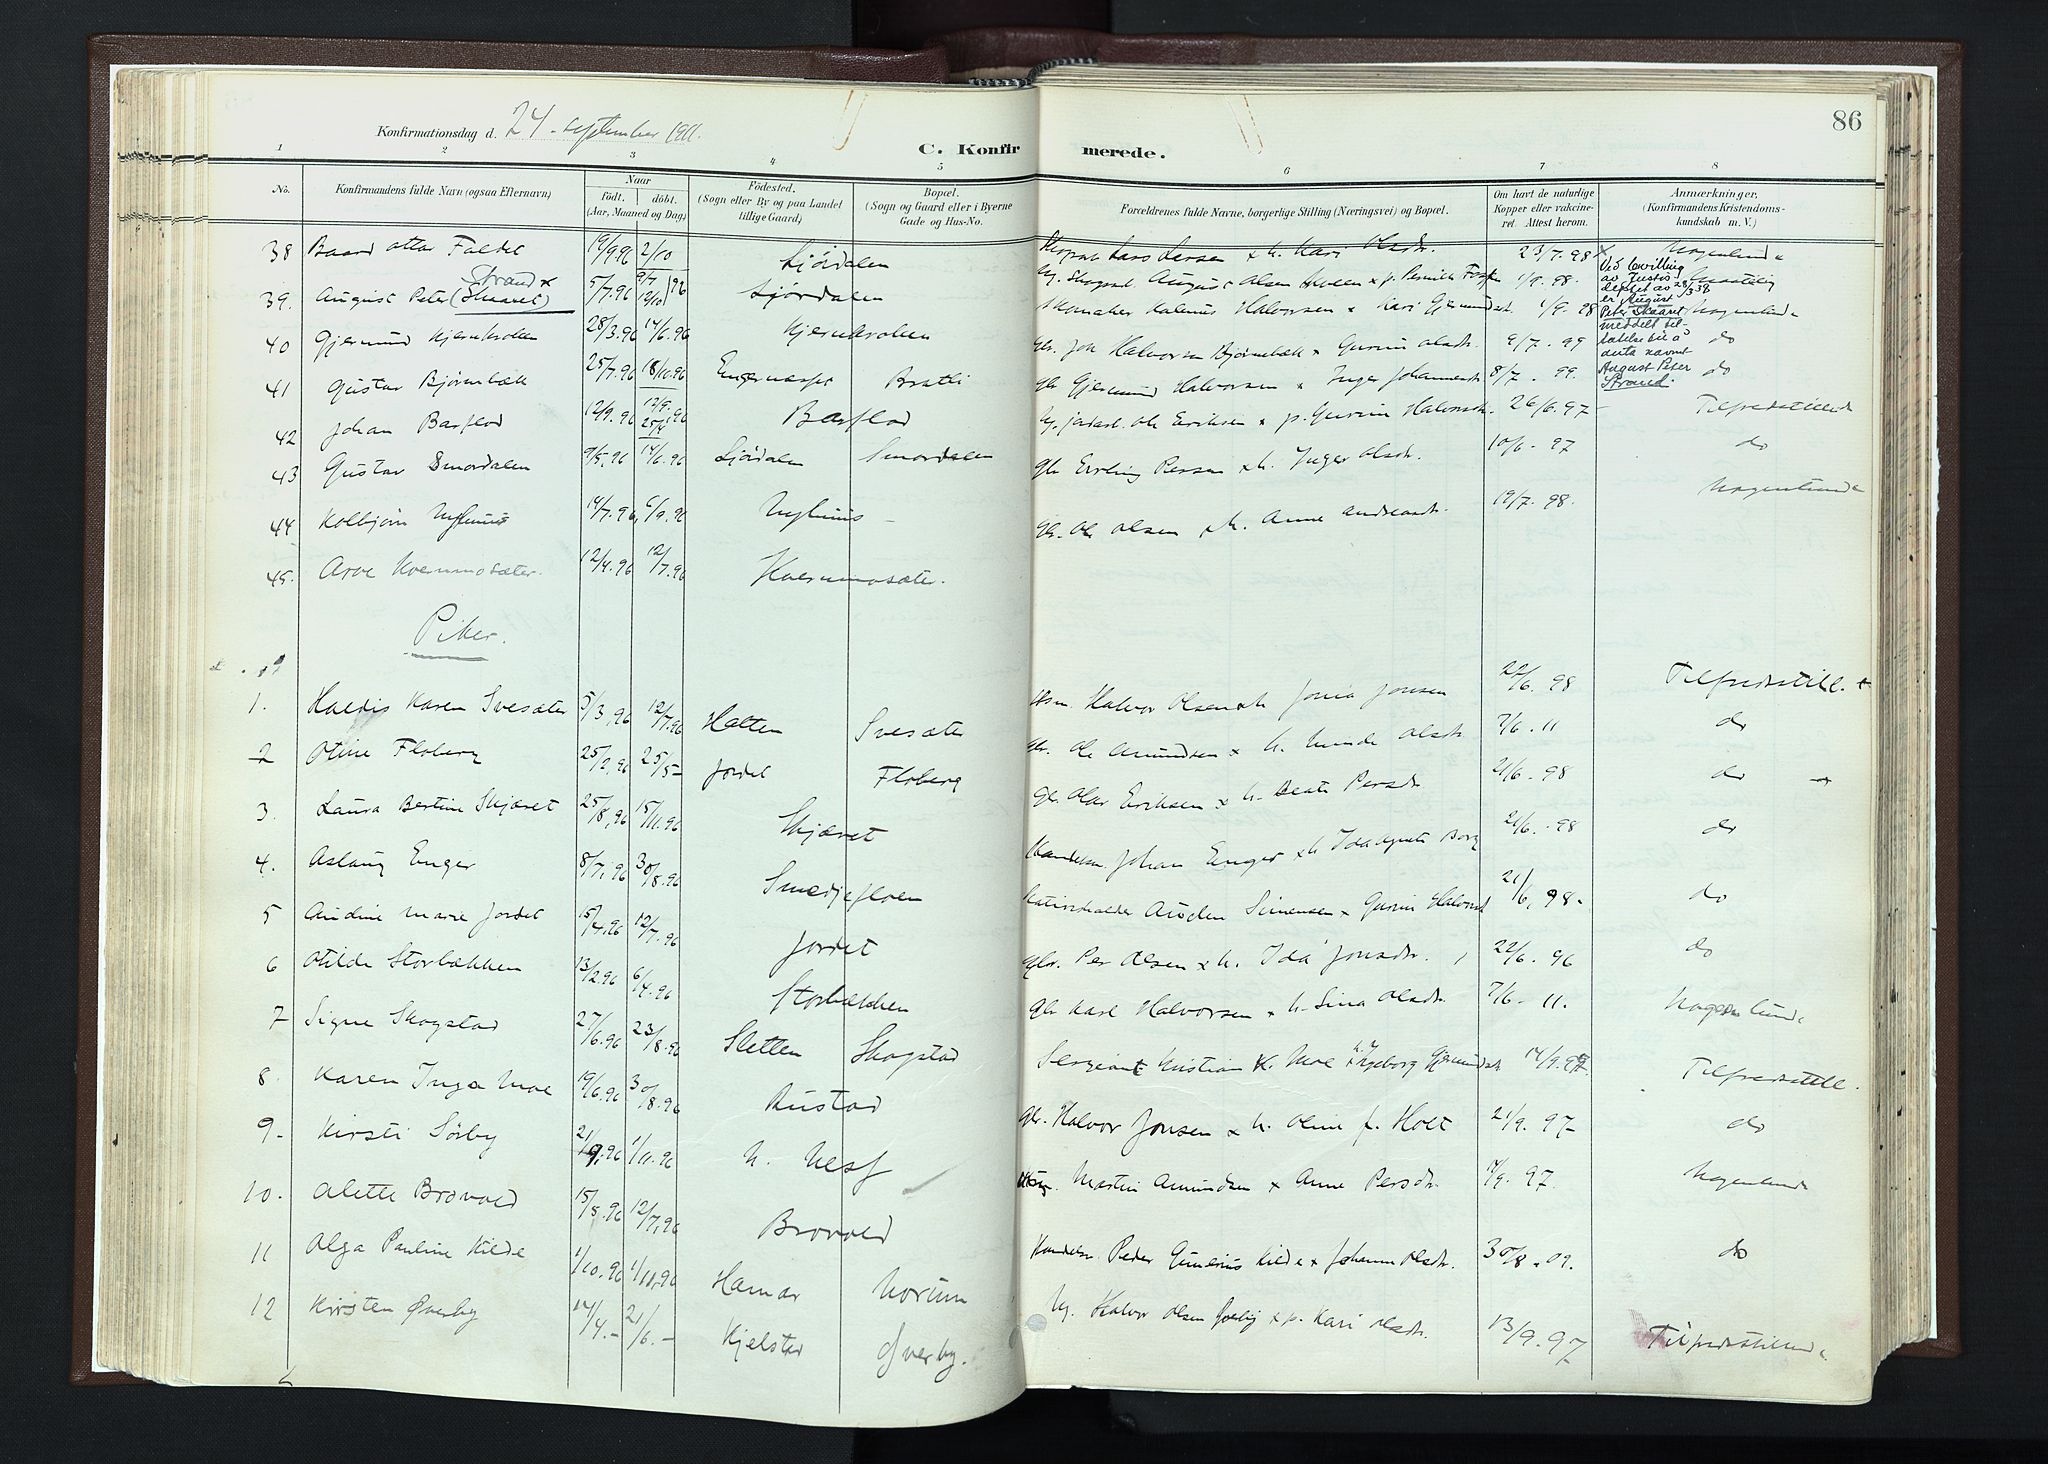 86
Konfirmationsdag d. 24. september 1911.
C. Konfirmerede.
1 2 3 4 5 6 7 8
No. Konfirmandens fulde Navn (ogsaa Efternavn) Naar födt. döbt. (Aar, Maaned og Dag) Födested. (Sogn eller By og paa Landet tillige Gaard) Bopæl. (Sogn og Gaard eller i Byerne Gade og Hus-No.) Forældrenes fulde Navne, borgerlige Stilling (Næringsvei) og Bopæl. Om havt de naturlige Kopper eller vaccineret. Attest herom. Anmærkninger, (Konfirmandens Kristendomskundskab m. V.)
38 Baard Ottar Faldet 19/9.96 2/10 Ljørdalen Lars Larsen x h. Kari Olsdtr. 23/7.98 Nogenlunde
39. August Peter (Skaaret) Strand x 5/7.96 9/7 12/10 96 Ljørdalen August Olsen 1/9.98.
x Ved bevilling av Justisdeptet av 28/3 38 er August Peter Skaaret meddelt tillatelse til å anta navnet August Peter Strand.
40 Gjermund Kjernkrollen 28/3.96 14/6.96 Kjernkrollen Skomaker Halvorsen x Kari Gjermundsdt. 1/9.98 Nogenlunde
41 Gustav Bjørnbæk 25/7.96 18/10.96 Engernesset Bratli Gbr. Jon Halvorsen Bjørnbæk x Gunni Olsdtr. 9/7.99 do
42 Johan Barflod 12/9.96 12/9.96 Barflod Gbr Gjermund Halvorsen x Inger Johannesdt 8/7.99. do
43 Gustav Smordalen 9/5.96 14/6.96 Ljørdalen Smordalen Ole Eriksen x p. Gunni Halvorsdt. 26/6.97- Tilfredstillende
44 Kolbjørn Nyhuus 14/7.96, 6/9.96 Nyhuus Gbr Erling Persen x h. Inger Olsdtr. 10/6.97 do
45. Arve Kvernmosæter. 12/4.96 12/7.96 Kvernmosæter. Gbr. Ole Olsen x h. Anne Andreasdt. 19/7.98. Nogenlunde
Piker.
1. Haldis Karen Svesæter 5/3.96 12/7.96 Hætten Svesæter Halvor Olsen x h Jonia Jonsen 22/6.98 Tilfredstill.
2 Otine Floberg 25/2.96 25/5- Jordet Floberg Gbr. Ole Amundsen x h. Olsdtr 7/6.11 do
3. Laura Bertine Skjæret 25/8.96 15/11.96 Skjæret Gbr Olav Eriksen x h. Beate Persdtr 21/6.98 do
4. Aslaug Enger 8/7.96 30/8.96 Smedjefloen Handelsm. Johan Enger x h Ida Agnete Borg 21/6.98 do
5 Audine Marie Jordet 15/4.96 12/7.96 Jordet Auden Simensen x Gunni Halvorsdt 21/6.98- do
6 Otilde Storbækken 13/2.96 6/4.96 Storbækken Gbr. Per Olsen x h. Ida Jonsdtr. 22/6.96 do
7 Signe Skogstad 27/6.96 23/8.96 Sletten Skogstad Gbr Karl Halvorsen x h. Sina Olsdtr. 7/6-11. Nogenlunde
8. Karen Inga Moe 19/6.96 30/8.96 Rustad Sergeant Kristian K. Moe Ingeborg Gjermundsdt 14/9.97. Tilfredsstill.
9- Kirsti Sörby 21/9.96 1/11.96 N. Nesf Gbr. Halvor Jonsen x h. Oline f. Holt 21/9.97- do
10. Alette Brovold 15/8.96 12/7.96 Brovold Martin Amundsen x Anne Persdtr. 14/9.97. Nogenlunde
11 Olga Pauline Kilde 1/10.96 1/11.96 Hamar Norum Handelsm. Peder Gunerius Kilde x Johanne Olsdtr. 30/8.09. do
12 Kirsten Øverby 14/4.- 21/6.- Kjelstad Øverby. Halvor Olsen Øverby x p. Kari Olsdtr. 13/9.97 Tilfredsstillende